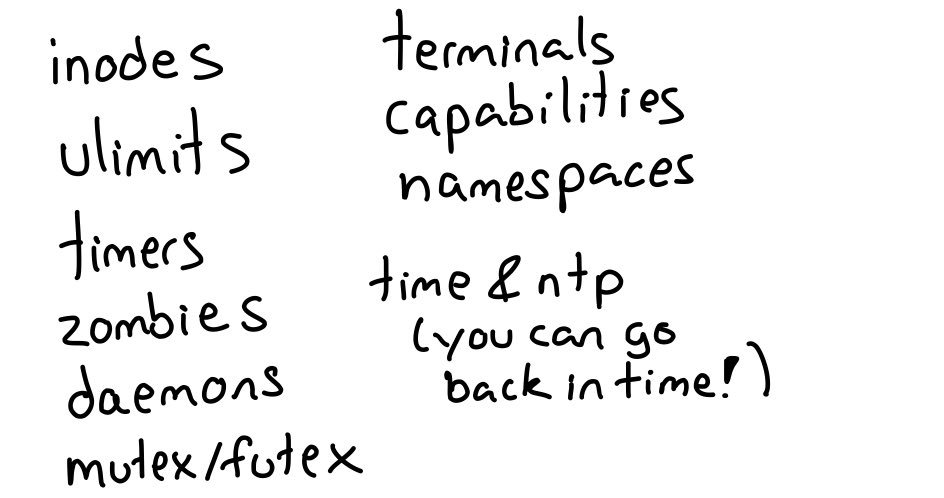 inodes
ulimits
timers
zombies
daemons
mutex/futex
terminals
capabilities
namespaces
time & ntp
(you can go
back in time!)